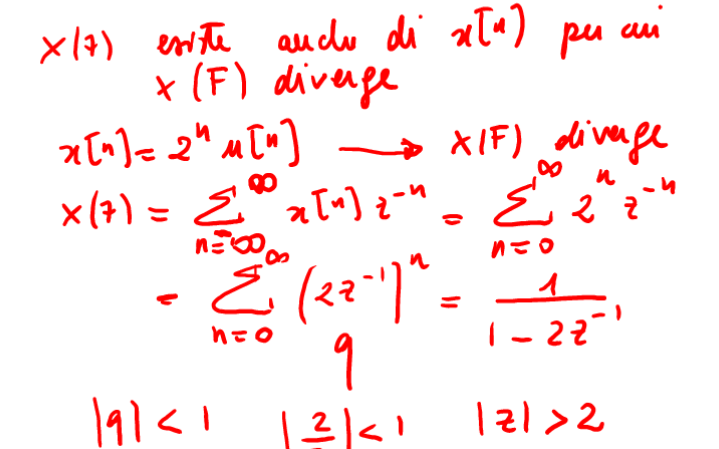 X(z) esiste anche di x[n] per cui
X(F) diverge
x[n] = 2^n u[n] → X(F) diverge
X(z) = ∑_{n=-∞}^{∞} x[n] z^{-n} = ∑_{n=0}^{∞} 2^n z^{-n}
= ∑_{n=0}^{∞} (2z^{-1})^n = 1/(1 - 2z^{-1})
q
|q| < 1 |2/ | < 1 |z| > 2